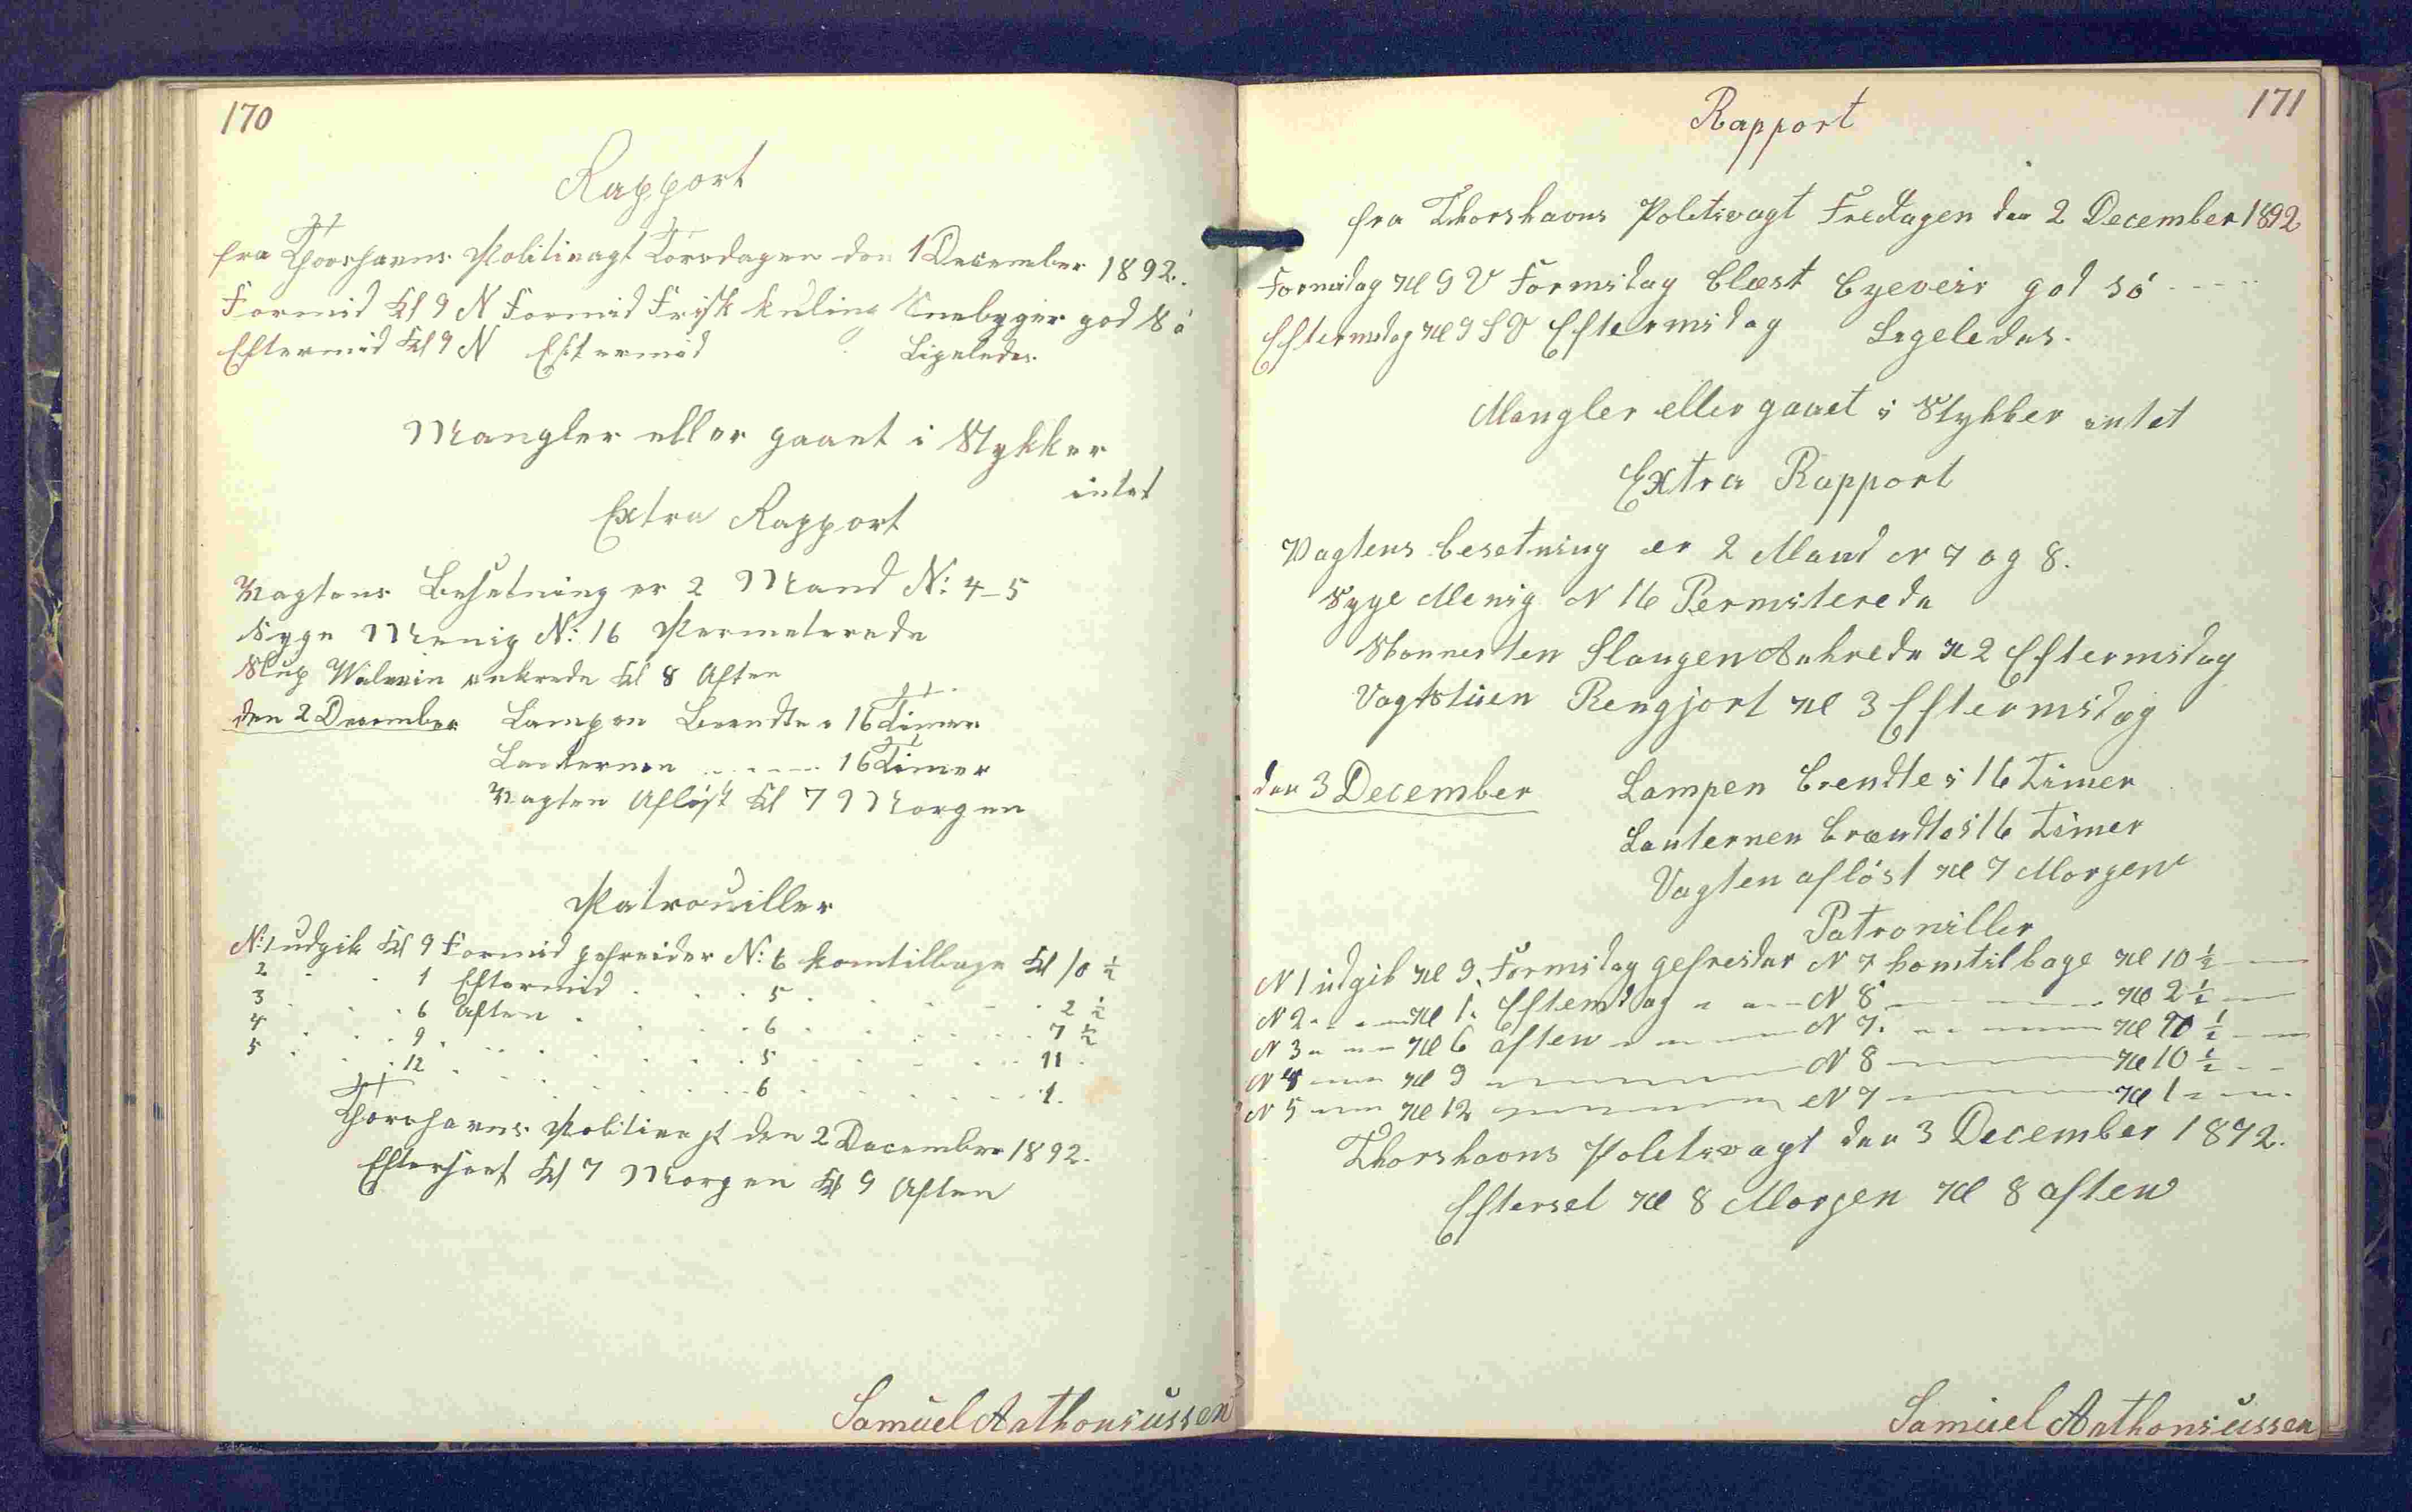 170
Rapport
fra Thorshavns Politivagt Torsdagen den 1 December 1892.
Formid Kl 9 N Formid Frisk kuling Snebyger god Sö
Eftermid Kl 9 N Eftermid Ligeledes.
Mangler eller gaaet i Stykker
intet
Extra Rapport
Vagtens Besetning er 2 Mand N: 4-5
Syge Menig N: 16 Permeterede
Slup Walvin ankrede Kl 8 Aften
den 2 December Lampen Brendte i 16 Timer
Lanternen 16 Timer
Vagten Aflöst Kl 7 Morgen
Patrouiller
N: 1 udgik Kl 9 Formid gefreider N: 6 komtilbage Kl 10 ½
2 1 Eftermid 5 2 ½
3 6 Aften 6 7 ½
4 9 5 11
5 12 6 1.
Thorshavns Politivagt den 2 December 1892.
Efterseet Kl 7 Morgen Kl 9 Aften
Samuel Anthoniussen
171
Rapport
fra Thorshavns Politivagt Fredagen den 2 December 1892
Formidag Kl 9 V Formidag blæst Byeveir god Sö
Eftermidag Kl 9 SV Eftermidag Ligeledes.
Mangler eller gaaet i Stykker intet
Extra Rapport
Vagtens besetning er 2 Mand N 7 og 8.
Syge Menig N 16 Permiterede
Skonnerten Slangen Ankrede Kl 2 Eftermidag
Vagtstuen Rengjort Kl 3 Eftermidag
den 3 December Lampen brendte i 16 Timer
Lanternen brændte i 16 Timer
Vagten aflöst Kl 7 Morgen
Patrouiller
N 1 udgik Kl 9 Formidag gefreider N 7 komtilbage Kl 10 ½
N 2 Kl 1 Eftemidag N 8 Kl 2 ½
N 3 Kl 6 aften N 7 Kl ½
N 4 Kl 9 N 8 Kl 10 ½
N 5 Kl 12 N 7 Kl 1
Thorshavns Politivagt den 3 December 1892.
Efterset Kl 8 Morgen Kl 8 aften
Samuel Anthoniussen